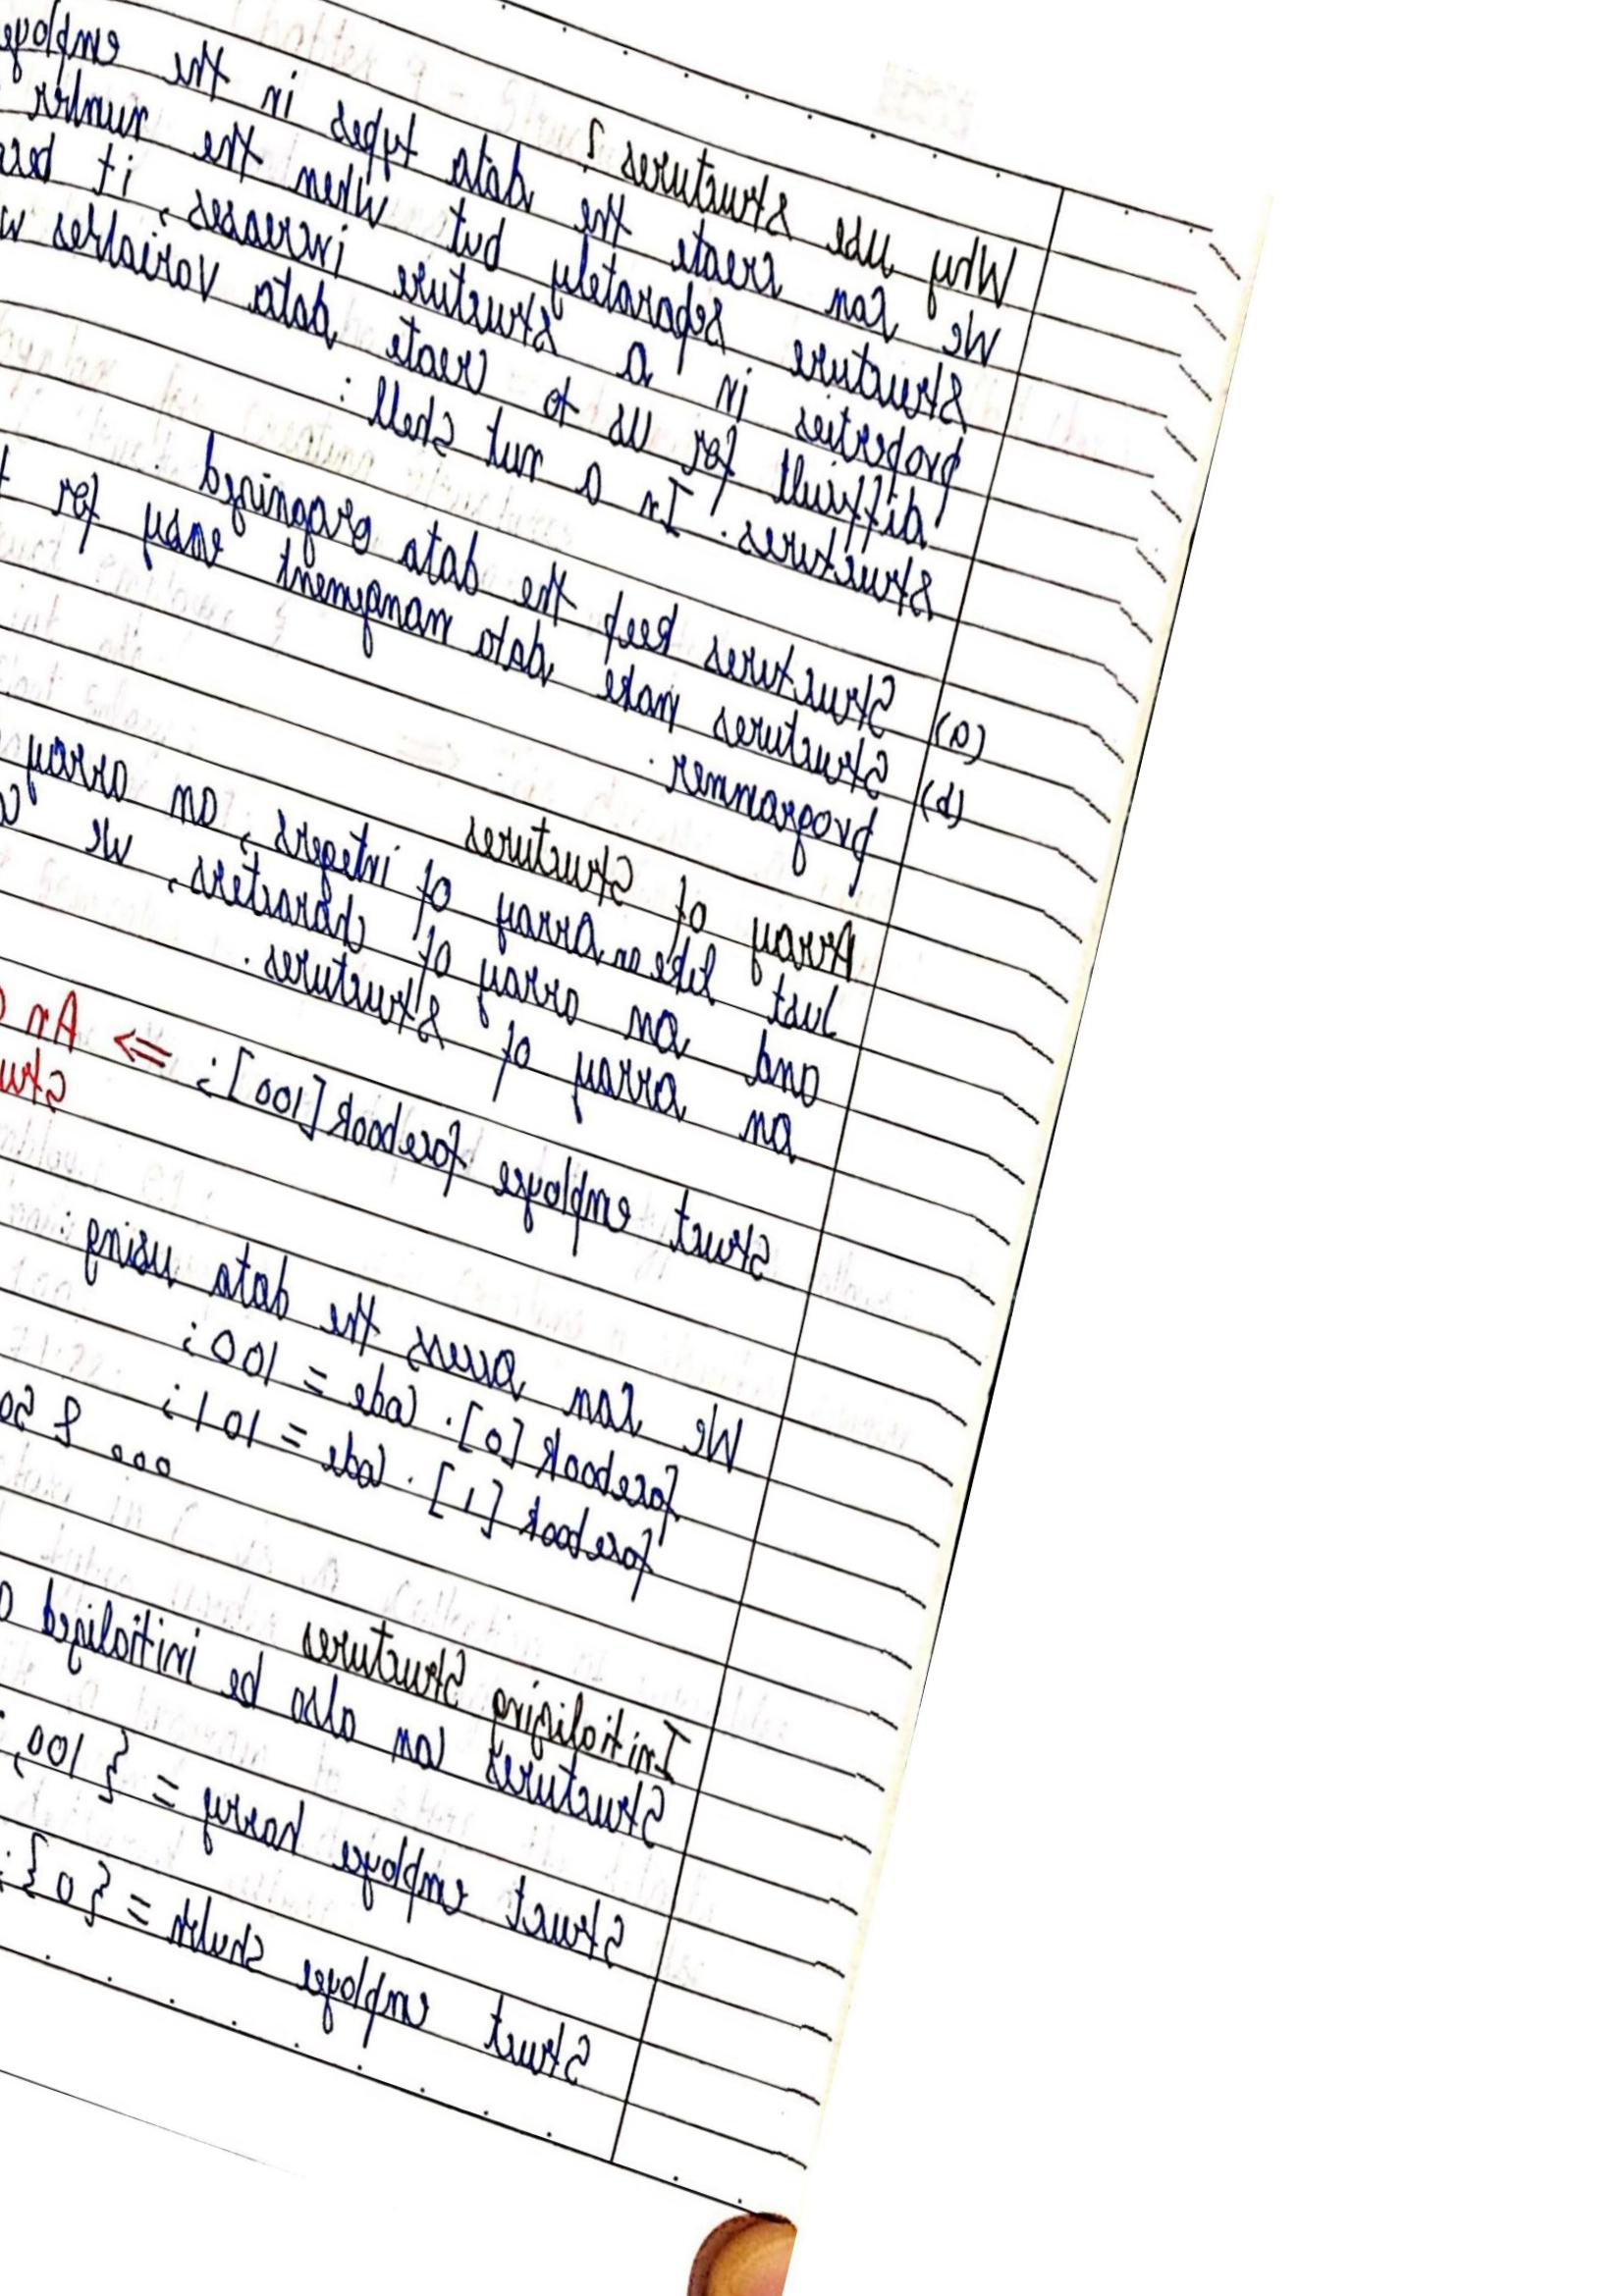 Why use structures?
We can create the data types in the employe
structure separately but when the number
properties in a structure increases, it bec
difficult for us to create data variables w
structures. In a nut shell:
(a) Structures keep the data organized
(b) Structures make data management easy for t
programmer.
Array of Structures
Just like an array of integers, an array
and an array of characters, we c
an array of structures.
struct employee facebook[100]; => An
stru
We can access the data using:
facebook[0].code = 100;
facebook[1].code = 101;
... & so
Initializing Structures
Structures can also be initialized a
struct employee harry = {100,
struct employee shubh = {0};